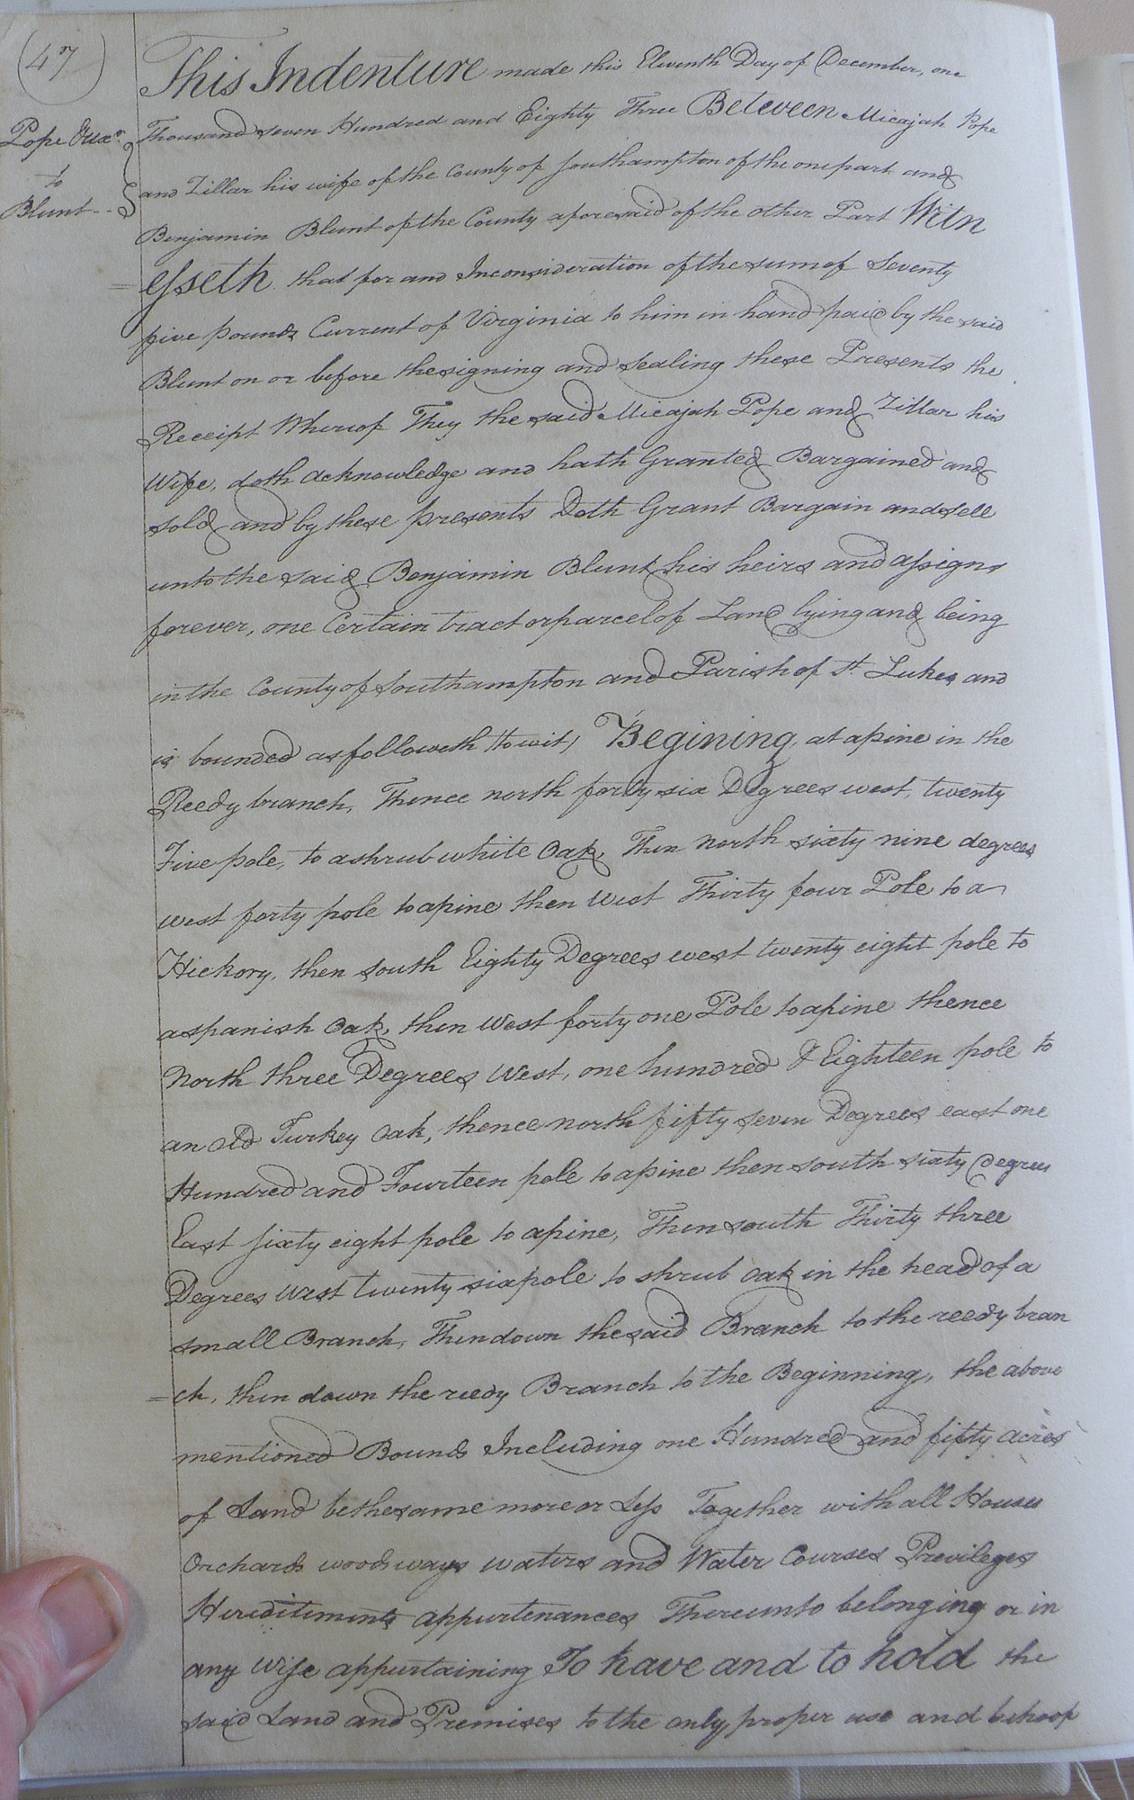 (47)
This Indenture made this Eleventh Day of December, one
Pope & ux.r
to
Blunt - -
Thousand seven Hundred and Eighty Three Between Micajah Pope
and Zillar his wife of the County of Southampton of the one part and
Benjamin Blunt of the County aforesaid of the other Part Witn
=esseth that for and Inconsideration of the sum of Seventy
five pounds Current of Virginia to him in hand paid by the said
Blunt on or before the signing and sealing these Presents the
Receipt Whereof They the said Micajah Pope and Zillar his
Wife, doth acknowledge and hath Granted Bargained and
sold and by these presents Doth Grant Bargain and sell
unto the said Benjamin Blunt his heirs and assigns
forever, one Certain tract or parcel of Land lying and being
in the County of Southampton and Parish of St. Lukes and
is bounded as followeth (towit) Begining at a pine in the
Reedy branch, Thence north forty six Degrees west, twenty
Five pole, to a shrub white Oak, Then North sixty nine degrees
west forty pole to a pine then West Thirty four Pole to a
Hickory, then south Eighty Degrees west twenty eight pole to
a spanish Oak, then West forty one Pole to a pine thence
North three Degrees West, one hundred & Eighteen pole to
an old Turkey Oak, thence north fifty seven Degrees east one
Hundred and Fourteen pole to a pine then south sixty Degrees
East sixty eight pole to a pine, Then south Thirty three
Degrees West twenty six pole to shrub Oak in the head of a
small Branch, Then down the said Branch to the reedy bran
=ch, then down the reedy Branch to the Beginning, the above
mentioned Bounds Including one Hundred and fifty acres
of Land be the same more or Less Together with all Houses
Orchards woods ways waters and Water Courses Previleges
Hereditiments appurtenances Thereunto belonging or in
any Wise appurtaining To have and to hold the
said Land and Premises to the only proper use and behoof